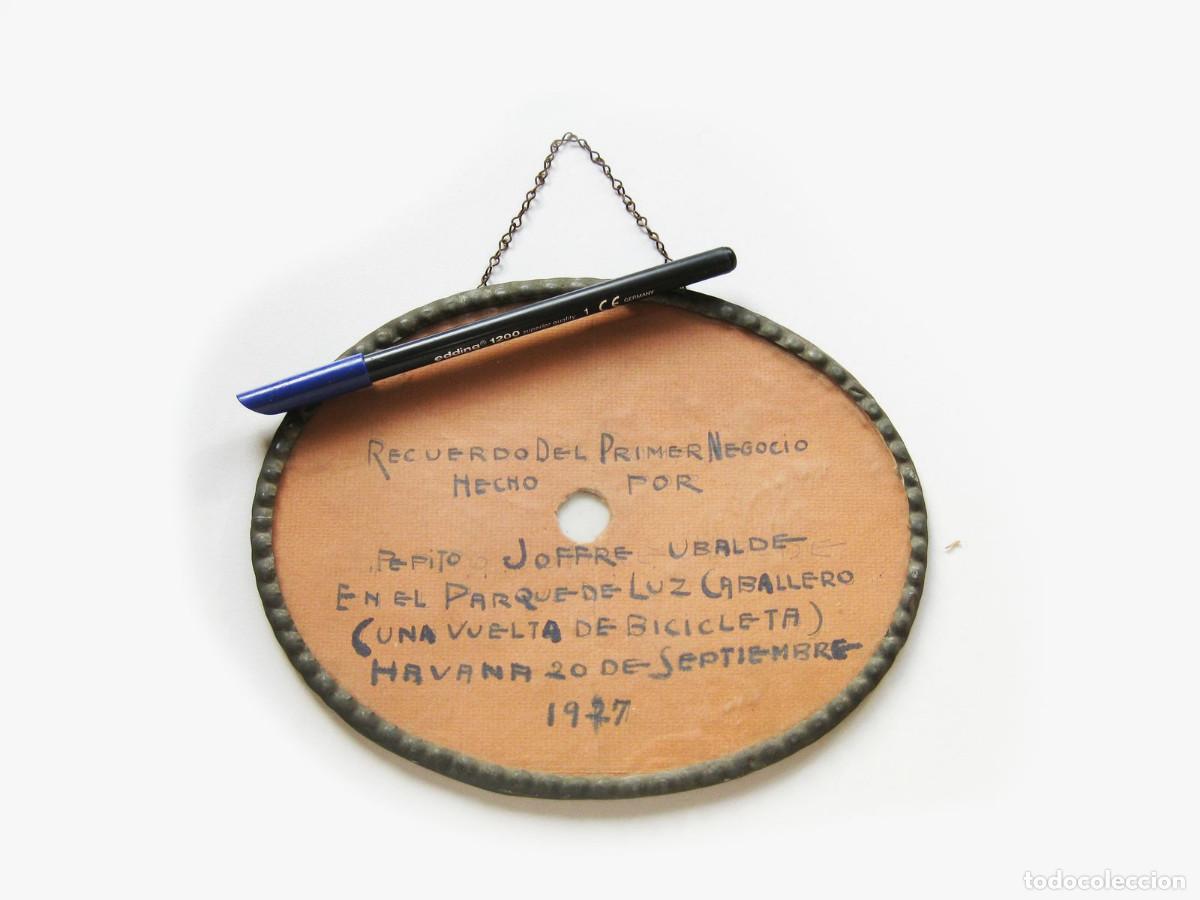 edding® 1200 superior quality 1 CE GERMANY
RECUERDO DEL PRIMER NEGOCIO
HECHO POR
PEPITO JOFFRE UBALDE
EN EL PARQUE DE LUZ CABALLERO
(UNA VUELTA DE BICICLETA)
HAVANA 20 DE SEPTIEMBRE
1927
todocoleccion